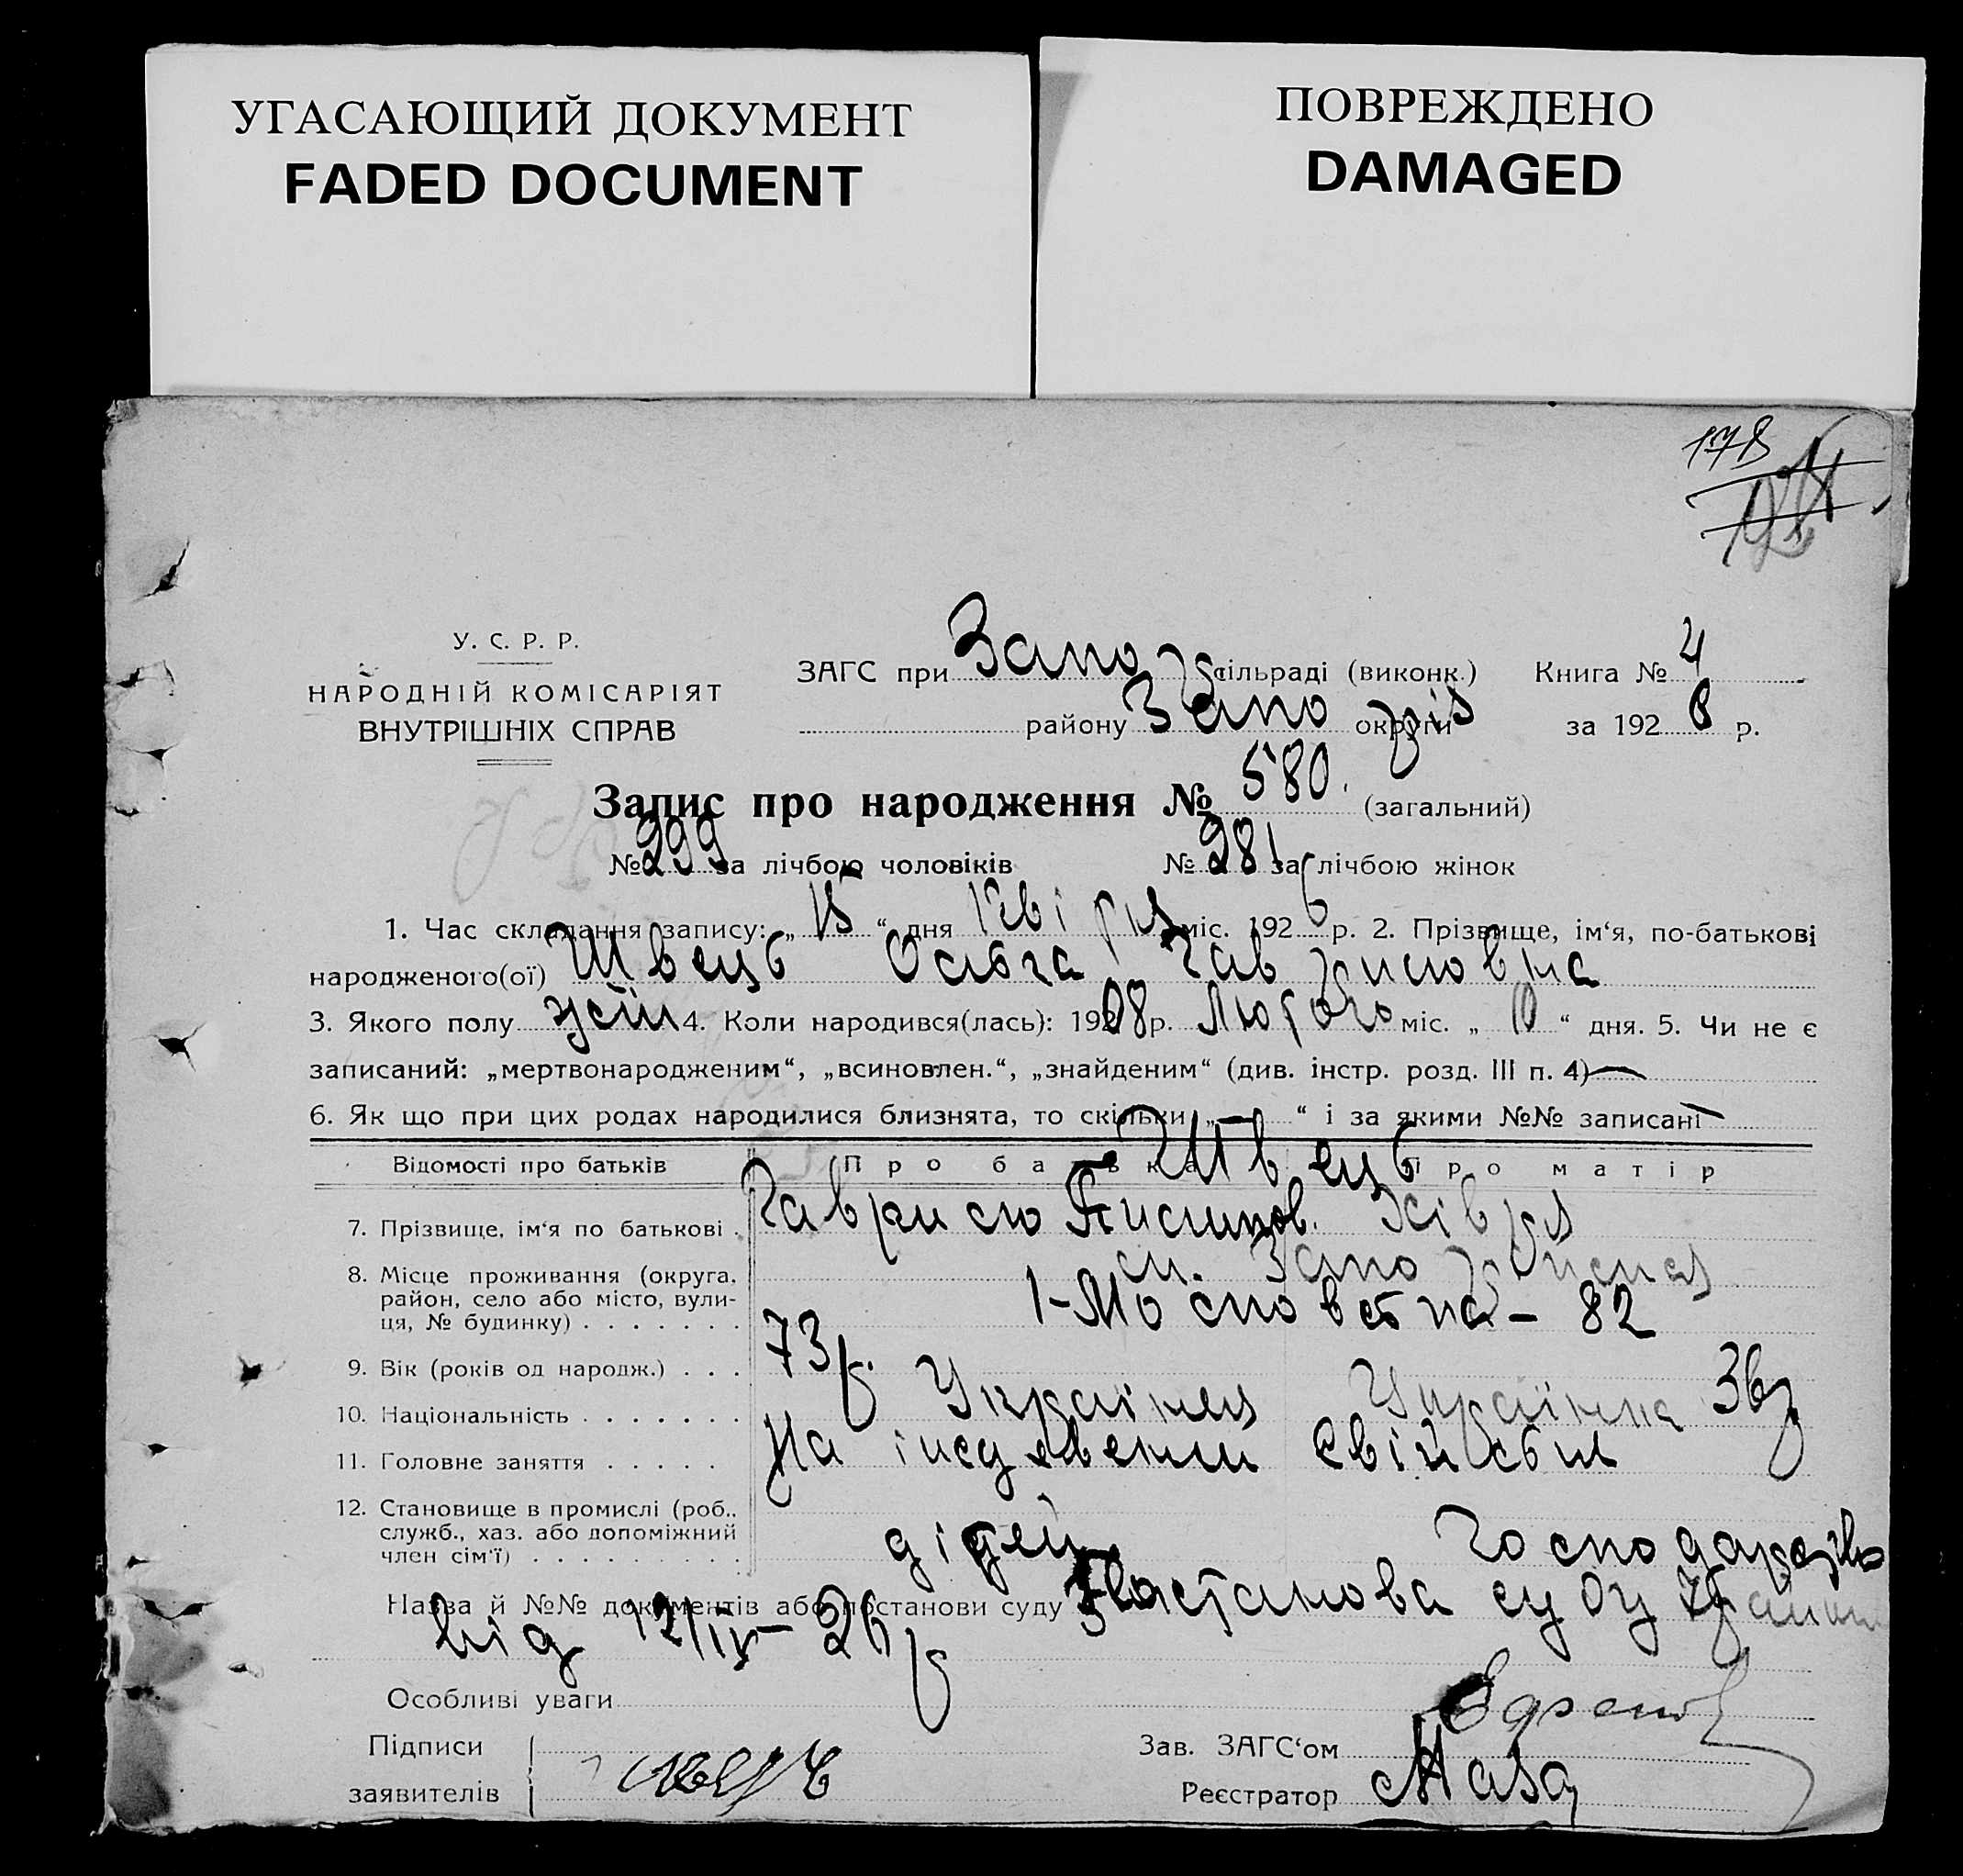 УГАСАЮЩИЙ ДОКУМЕНТ
FADED DOCUMENT
ПОВРЕЖДЕНО
DAMAGED
178
У. С. Р. Р.
НАРОДНІЙ КОМІСАРІЯТ
ВНУТРІШНІХ СПРАВ
ЗАГС при Запор сільраді (виконк.) Книга № 4
району Запоріз округи за 1926 р.
Запис про народження № 580. (загальний)
№ 299 за лічбою чоловіків № 281 за лічбою жінок
1. Час складання запису: „ 15 “ дня Квітня міс. 1926 р. 2. Прізвище, ім‘я, по-батькові
народженого(ої) Швець Ольга Гавриловна
3. Якого полу жін 4. Коли народився(лась): 1908 р. Лютого міс. „ 10 “ дня. 5. Чи не є
записаний: „мертвонародженим“, „всиновлен.“, „знайденим“ (див. інстр. розд. III п. 4) —
6. Як що при цих родах народилися близнята, то скільки „ — “ і за якими №№ записані —
Відомості про батьків Про батька Про матір
Швець
7. Прізвище, ім‘я по батькові . Гаврило
8. Місце проживання (округа, район, село або місто, вулиця, № будинку) . . . . . . . ст. Запоріжжя
1-Московська – 82
9. Вік (років од народж.) . . . 73р.
10. Національність . . . . . . . Українец Українка
11. Головне заняття . . . . . На іждевении свійськ
12. Становище в промислі (роб., служб., хаз. або допоміжний член сім‘ї) . . . . . . . . . дітей Господарство
Назва й №№ документів або постанови суду Постанова суду
від 12/IV–26р
Особливі уваги
Підписи
заявителів
Зав. ЗАГС‘ом
Реєстратор